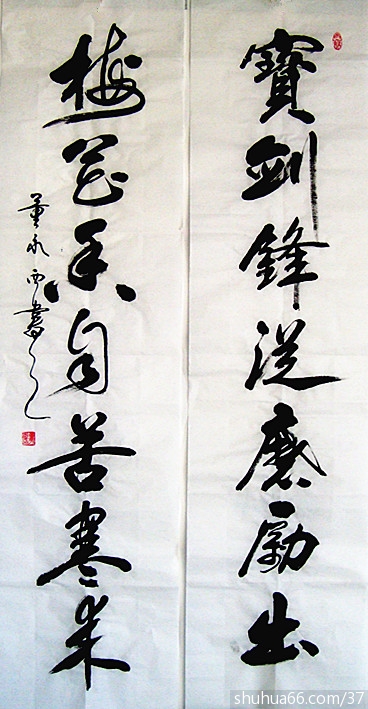 寶劍鋒從磨勵出
梅花香自苦寒来
董永西書
shuhua66.com/37